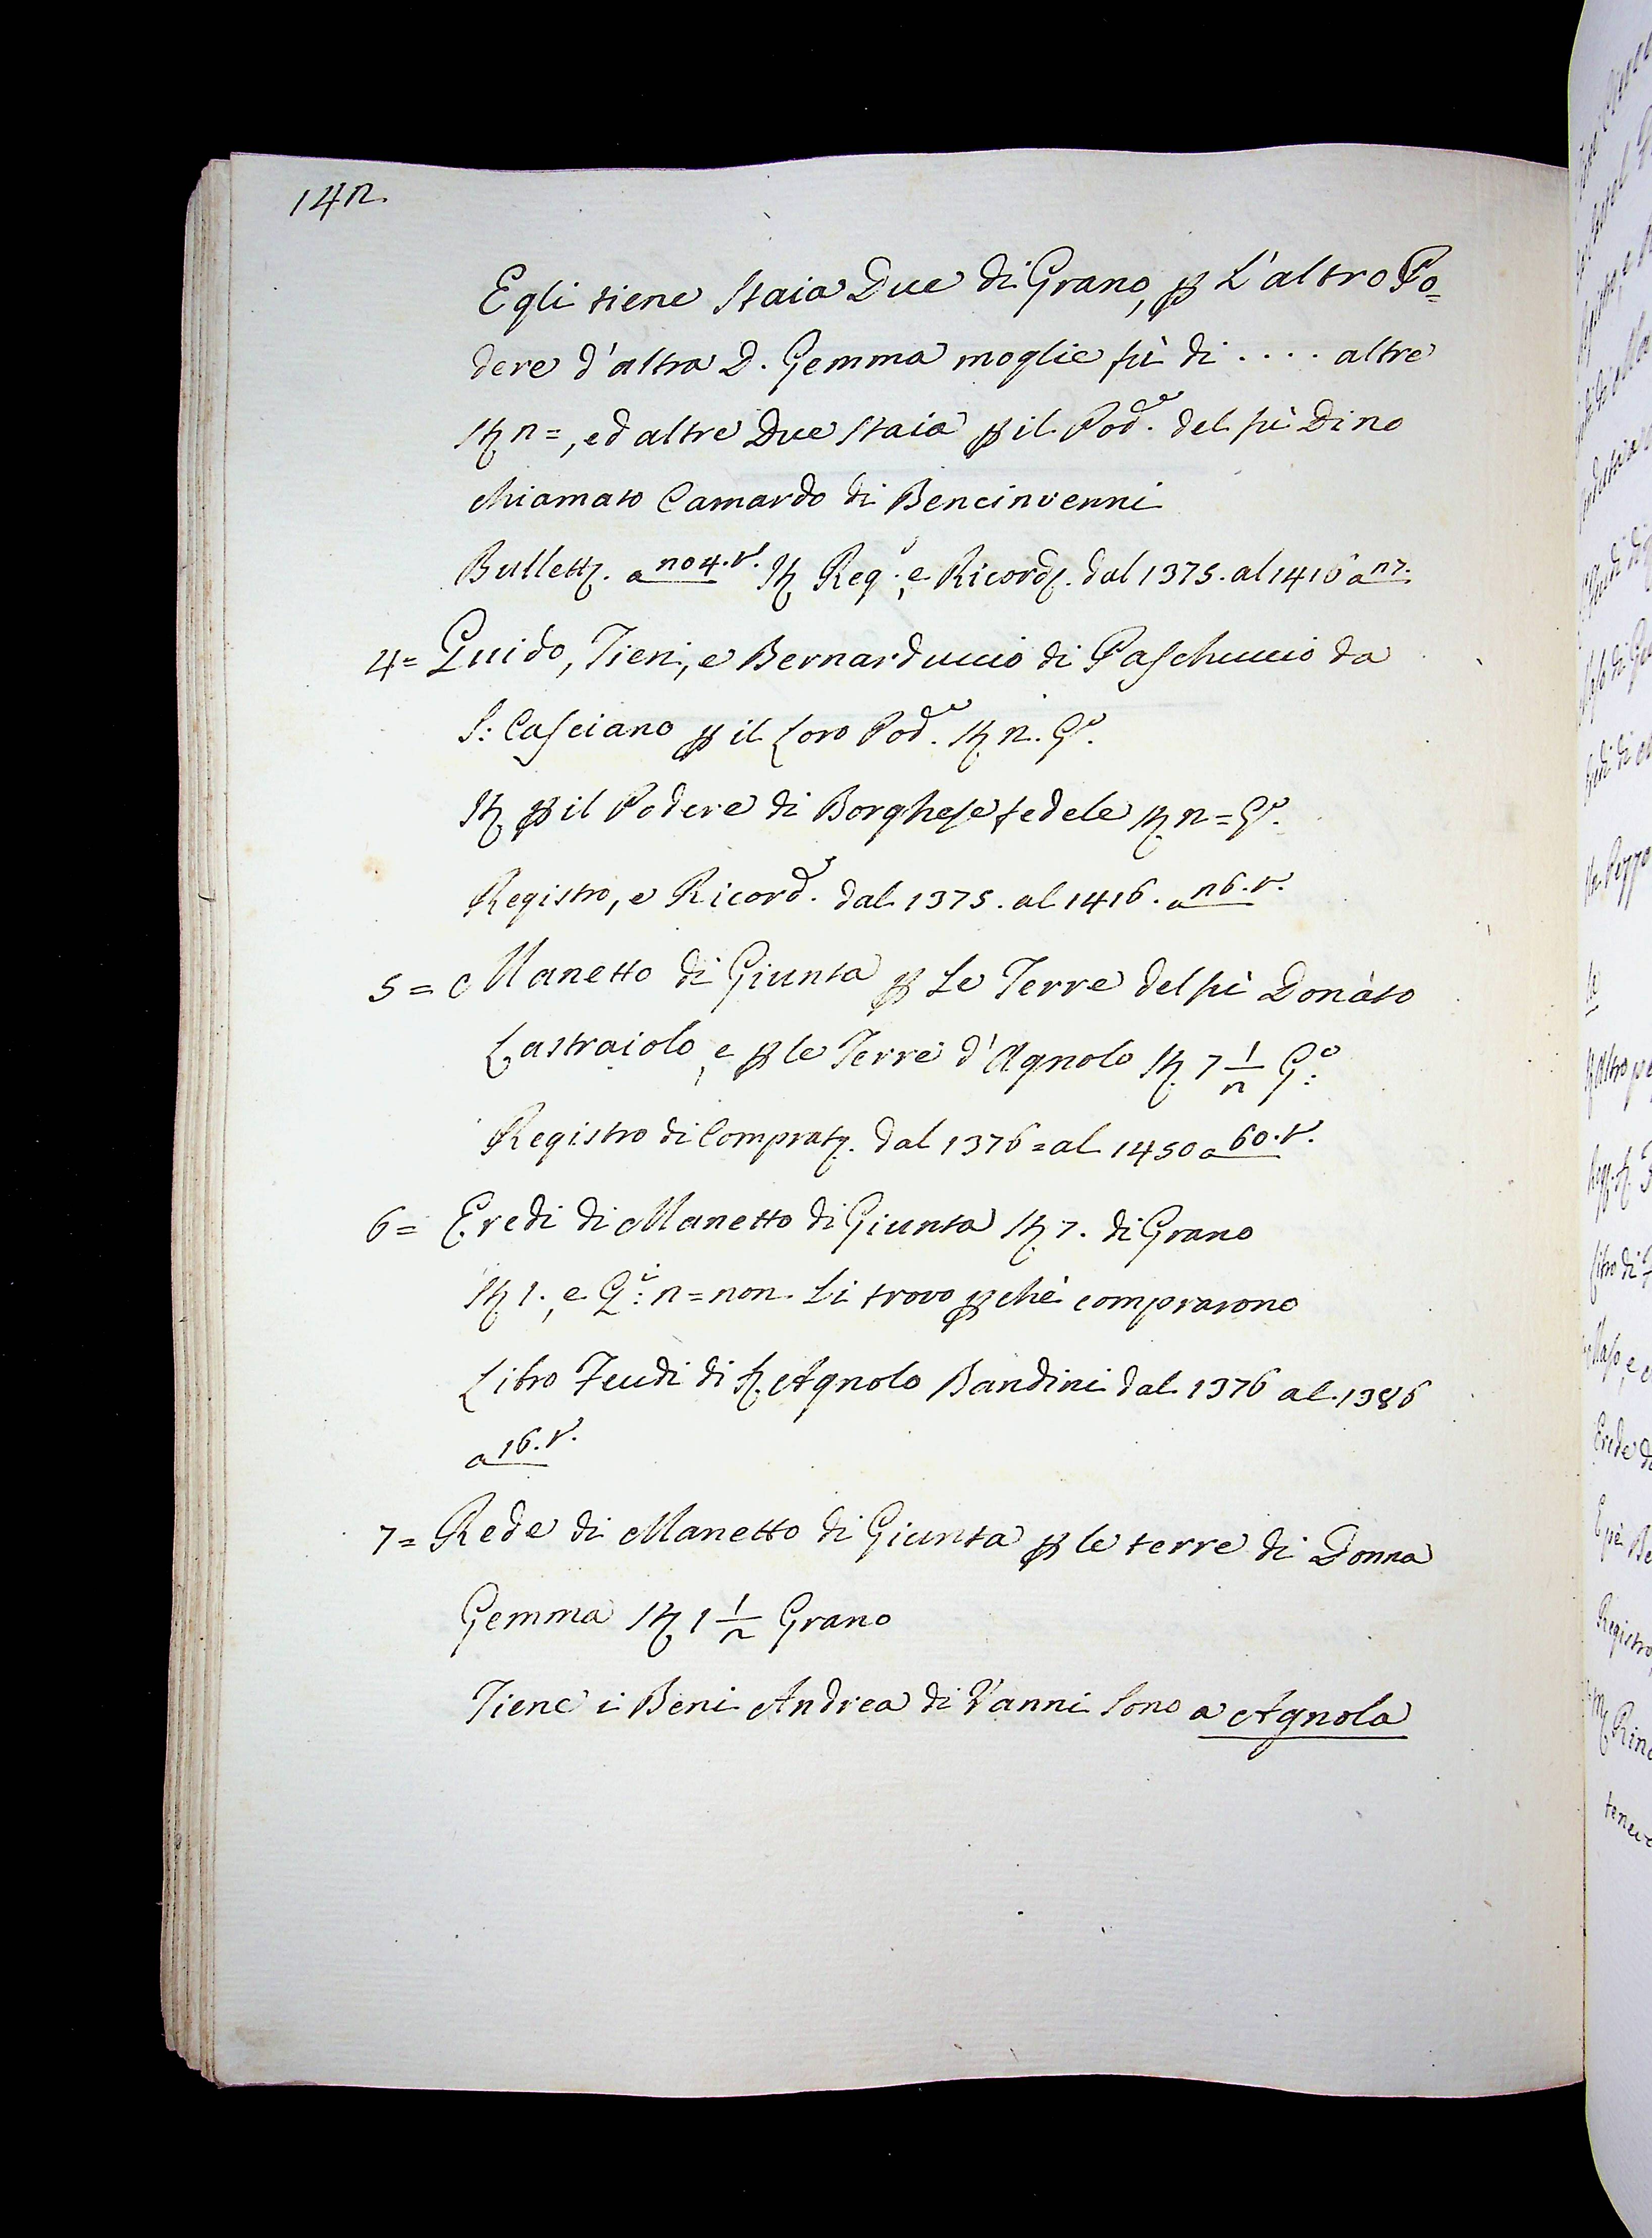 142.
Egli tiene Staia Due di Grano, p L'altro Po=
dere d'altra D. Gemma moglie fù di .... altre
St 2=, ed altre Due Staia p il Pod.e del fù Dino
chiamato Camardo di Bencinvenni
Bullett. a 204.v. It Reg.o, e Ricord. dal 1375. al 1416 a 27.
4= Guido, Tieri, e Bernarduccio di Paschuccio da
S: Casciano p il Loro Pod.e St 2. G.o
It p il Podere di Borghese fedele St 2= G.o
Registro, e Ricord.i dal 1375. al 1416. a 26.v.
5= Manetto di Giunta p Le Terre del fù Donàto
Lastraiolo, e p le Terre d'Agnolo St 7 1/2 G:o
Registro di Comprat. dal 1376= al 1450 a 60.v.
6= Eredi di Manetto di Giunta St 7. di Grano
St 1., e Q:i 2= non Li trovo p chè comprarono
Libro Feudi di Agnolo Bandini dal 1376 al 1386
a 16.v.
7= Rede di Manetto di Giunta p le terre di Donna
Gemma St 1 1/2 Grano
Tiene i Beni Andrea di Vanni Sono a Agnola